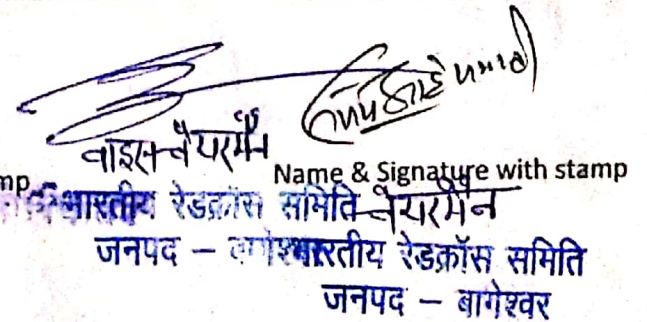 वाइस चैयरमैन
Name & Signature with stamp
mp
भारतीय रेडक्रॉस समिति चैयरमैन
जनपद – भारतीय रेडक्रॉस समिति
जनपद – बागेश्वर